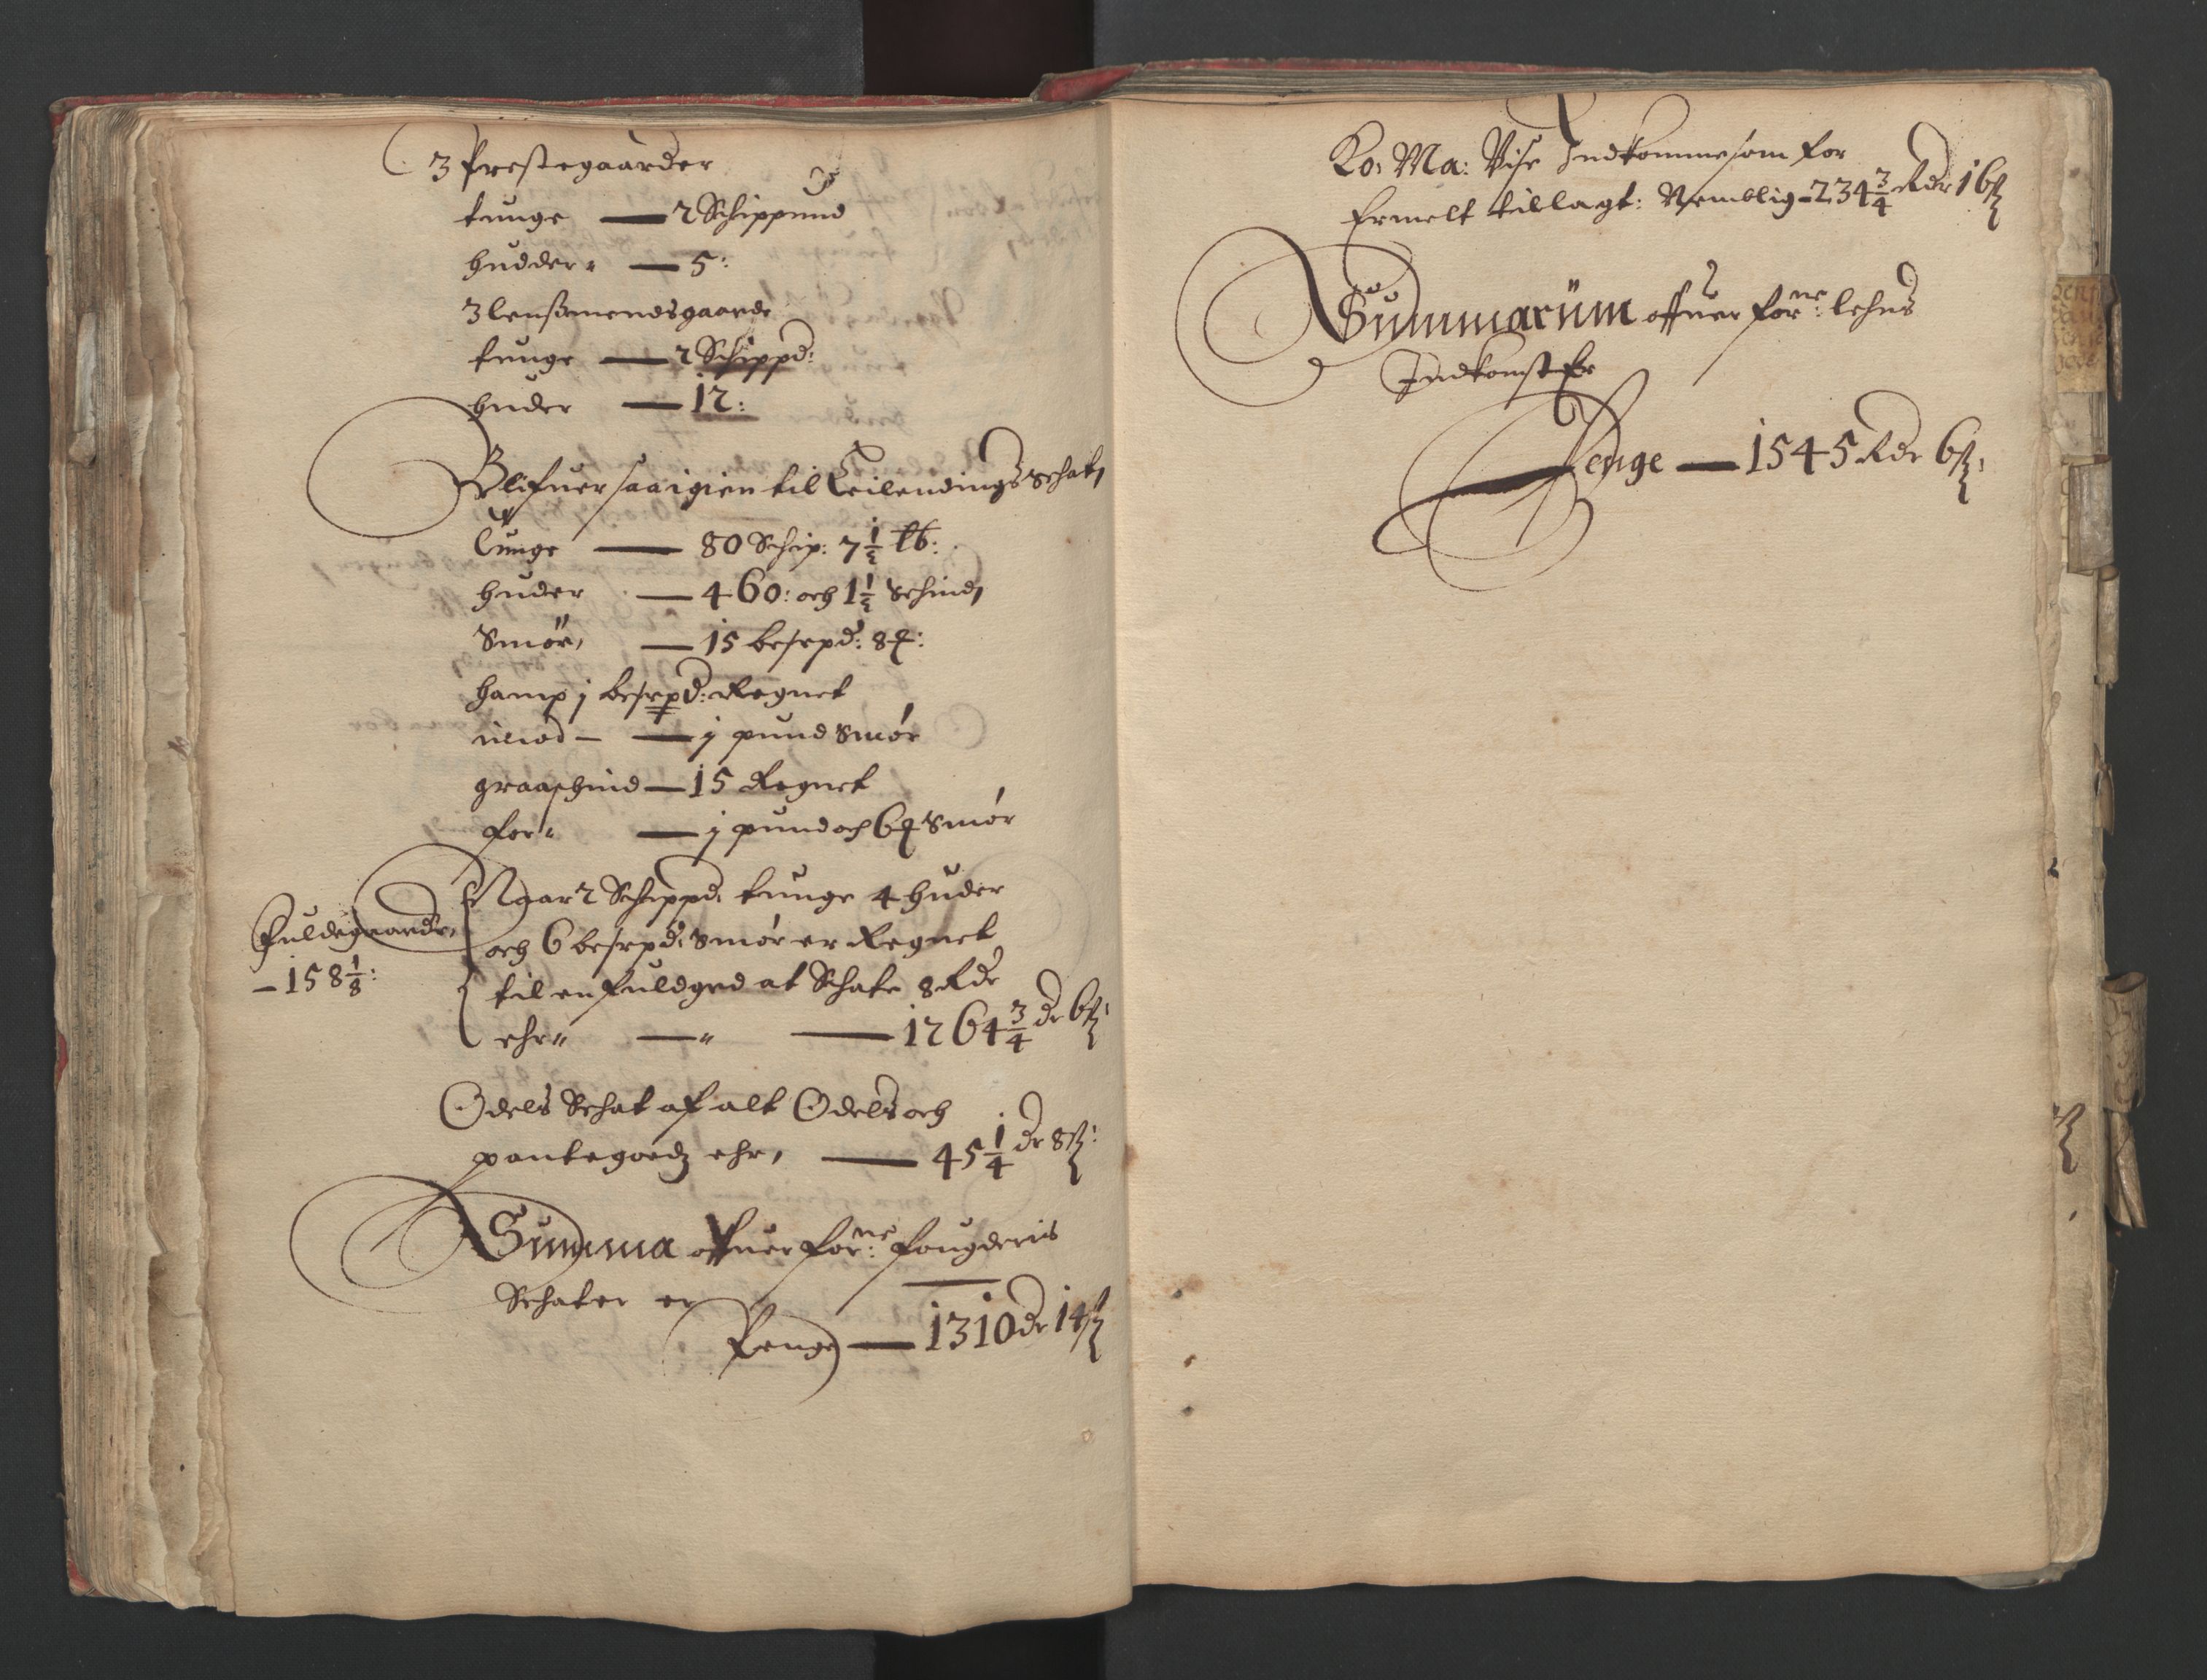 3 Prestegaarder
tunge — 2 Schippund
hudder — 5:
3 lensmendsgaarde
tunge — 2 Schippd:
huder — 12:
Blifuer saa igien til Leilendings Schat,
tunge — 80 Schip: 7½ ℔:
huder — 460: och 1½ Schind,
Smør, — 15 besmpd: 8 ♃:
hamp j besmpd: Regnet
imod — j pund Smør
graaschind — 15 Regnet
for — j pund och 6 ♃ Smør
Fuldegaarde,
— 158⅛:
Naar 2 Schippd: tunge 4 huder
och 6 besmpd: Smør er Regnet
til en fuldgrd at Schate 8 Rdr
ehr — 1264¾ dr 6 ß:
Odels Schat af alt Odels och
pantegodz ehr, — 45¼ dr 8 ß:
Summa offuer for:ne fougderis
Schater er
Penge — 1310 dr 14 ß
Ko: Ma: Vise Indkomme som for
Ermelt tillagt: Nemblig — 234¾ Rdr 16 ß
Summarüm offuer for:ne lehns
Indkomst Er
Penge — 1545 Rdr 6 ß: